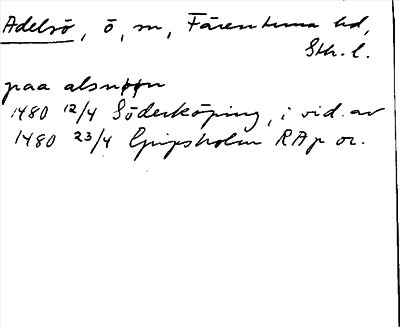 Adelsö, ö, sn, Färentuna hd,
Sth. l.
paa alsnøøn
1480 12/4 Söderköping, i vid. av
1480 23/4 Gripsholm RAp or.